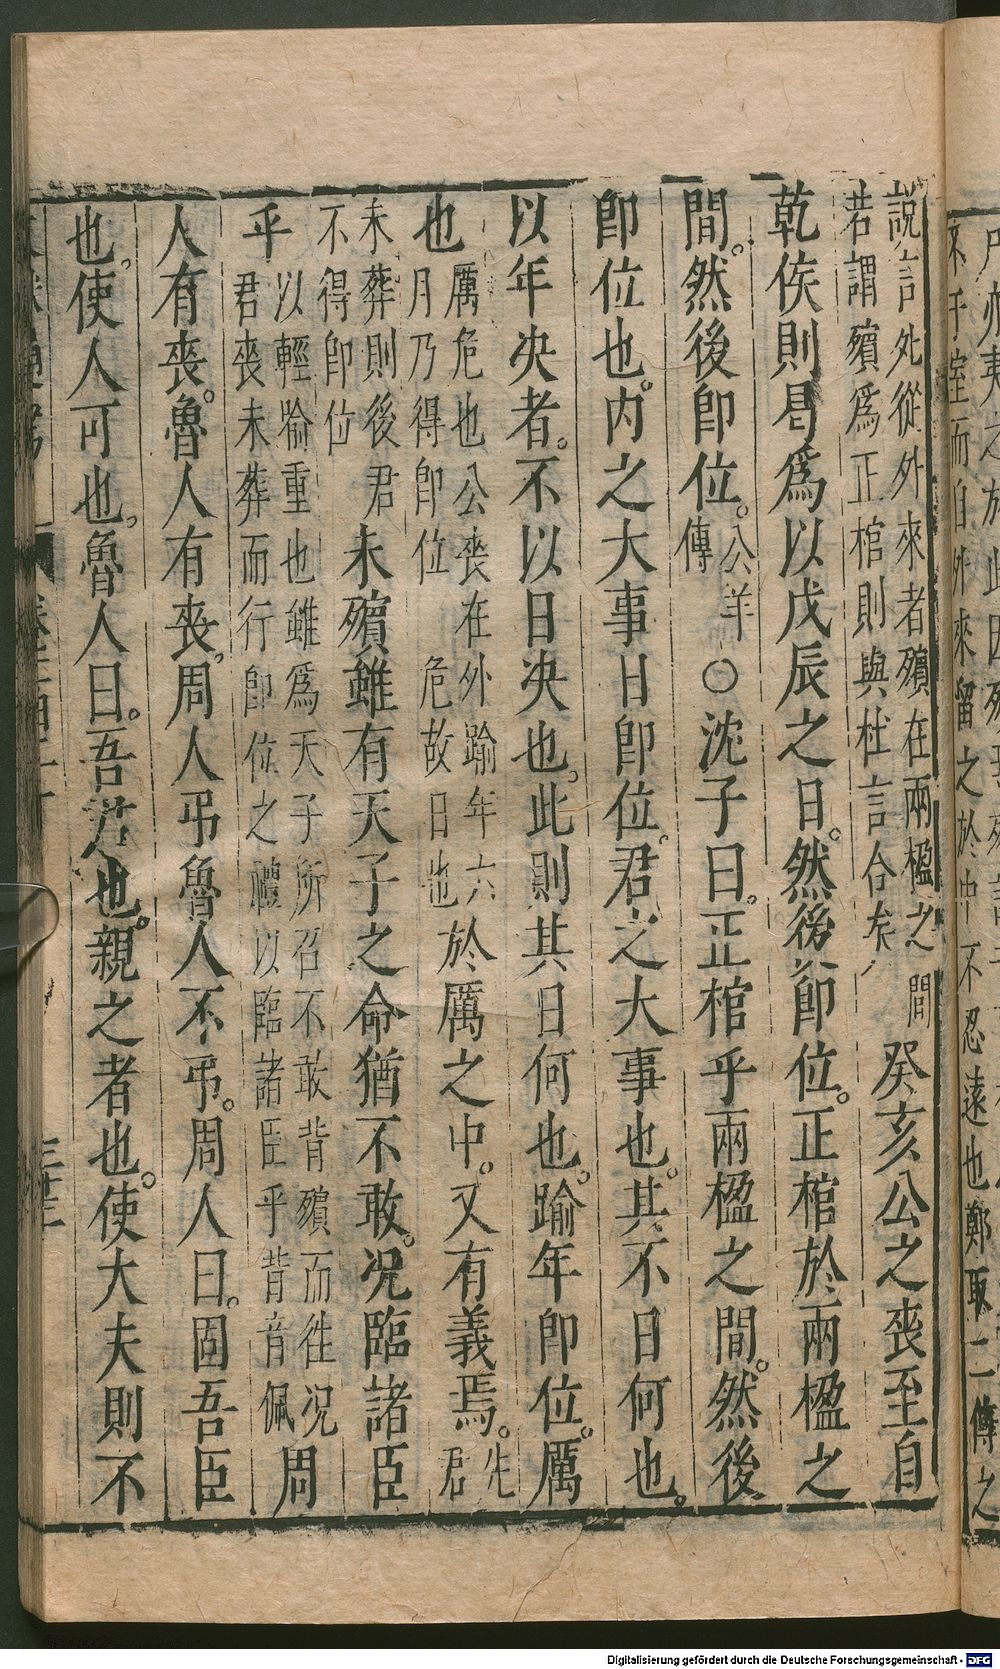 說言外從外來者殯在兩楹之間
若謂殯爲正棺則與杜言合矣
癸亥公之喪至自
乾侯則曷爲以戊辰之日。然後卽位。正棺於兩楹之
間。然後卽位。
公羊
傳
○沈子曰。正棺乎兩楹之間。然後
卽位也。内之大事日卽位。君之大事也。其不日何也。
以年決者。不以日決也。此則其日何也。踰年卽位。厲
也
厲危也公喪在外踰年六
月乃得卽位
危故日也
於厲之中。又有義焉。
先
君
未葬則後君
不得卽位
未殯雖有天子之命猶不敢。况臨諸臣
乎
以輕踰重也雖爲天子所召不敢背殯而往况
君喪未葬而行卽位之禮以臨諸臣乎背音佩
周
人有喪。魯人有喪。周人弔魯人不弔。周人曰。固吾臣
也。使人可也。魯人曰。吾君也。親之者也。使大夫則不
Digitalisierung gefördert durch die Deutsche Forschungsgemeinschaft - DFG